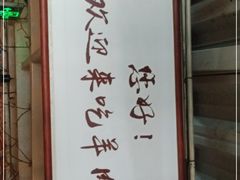 您好！
欢迎来吃羊